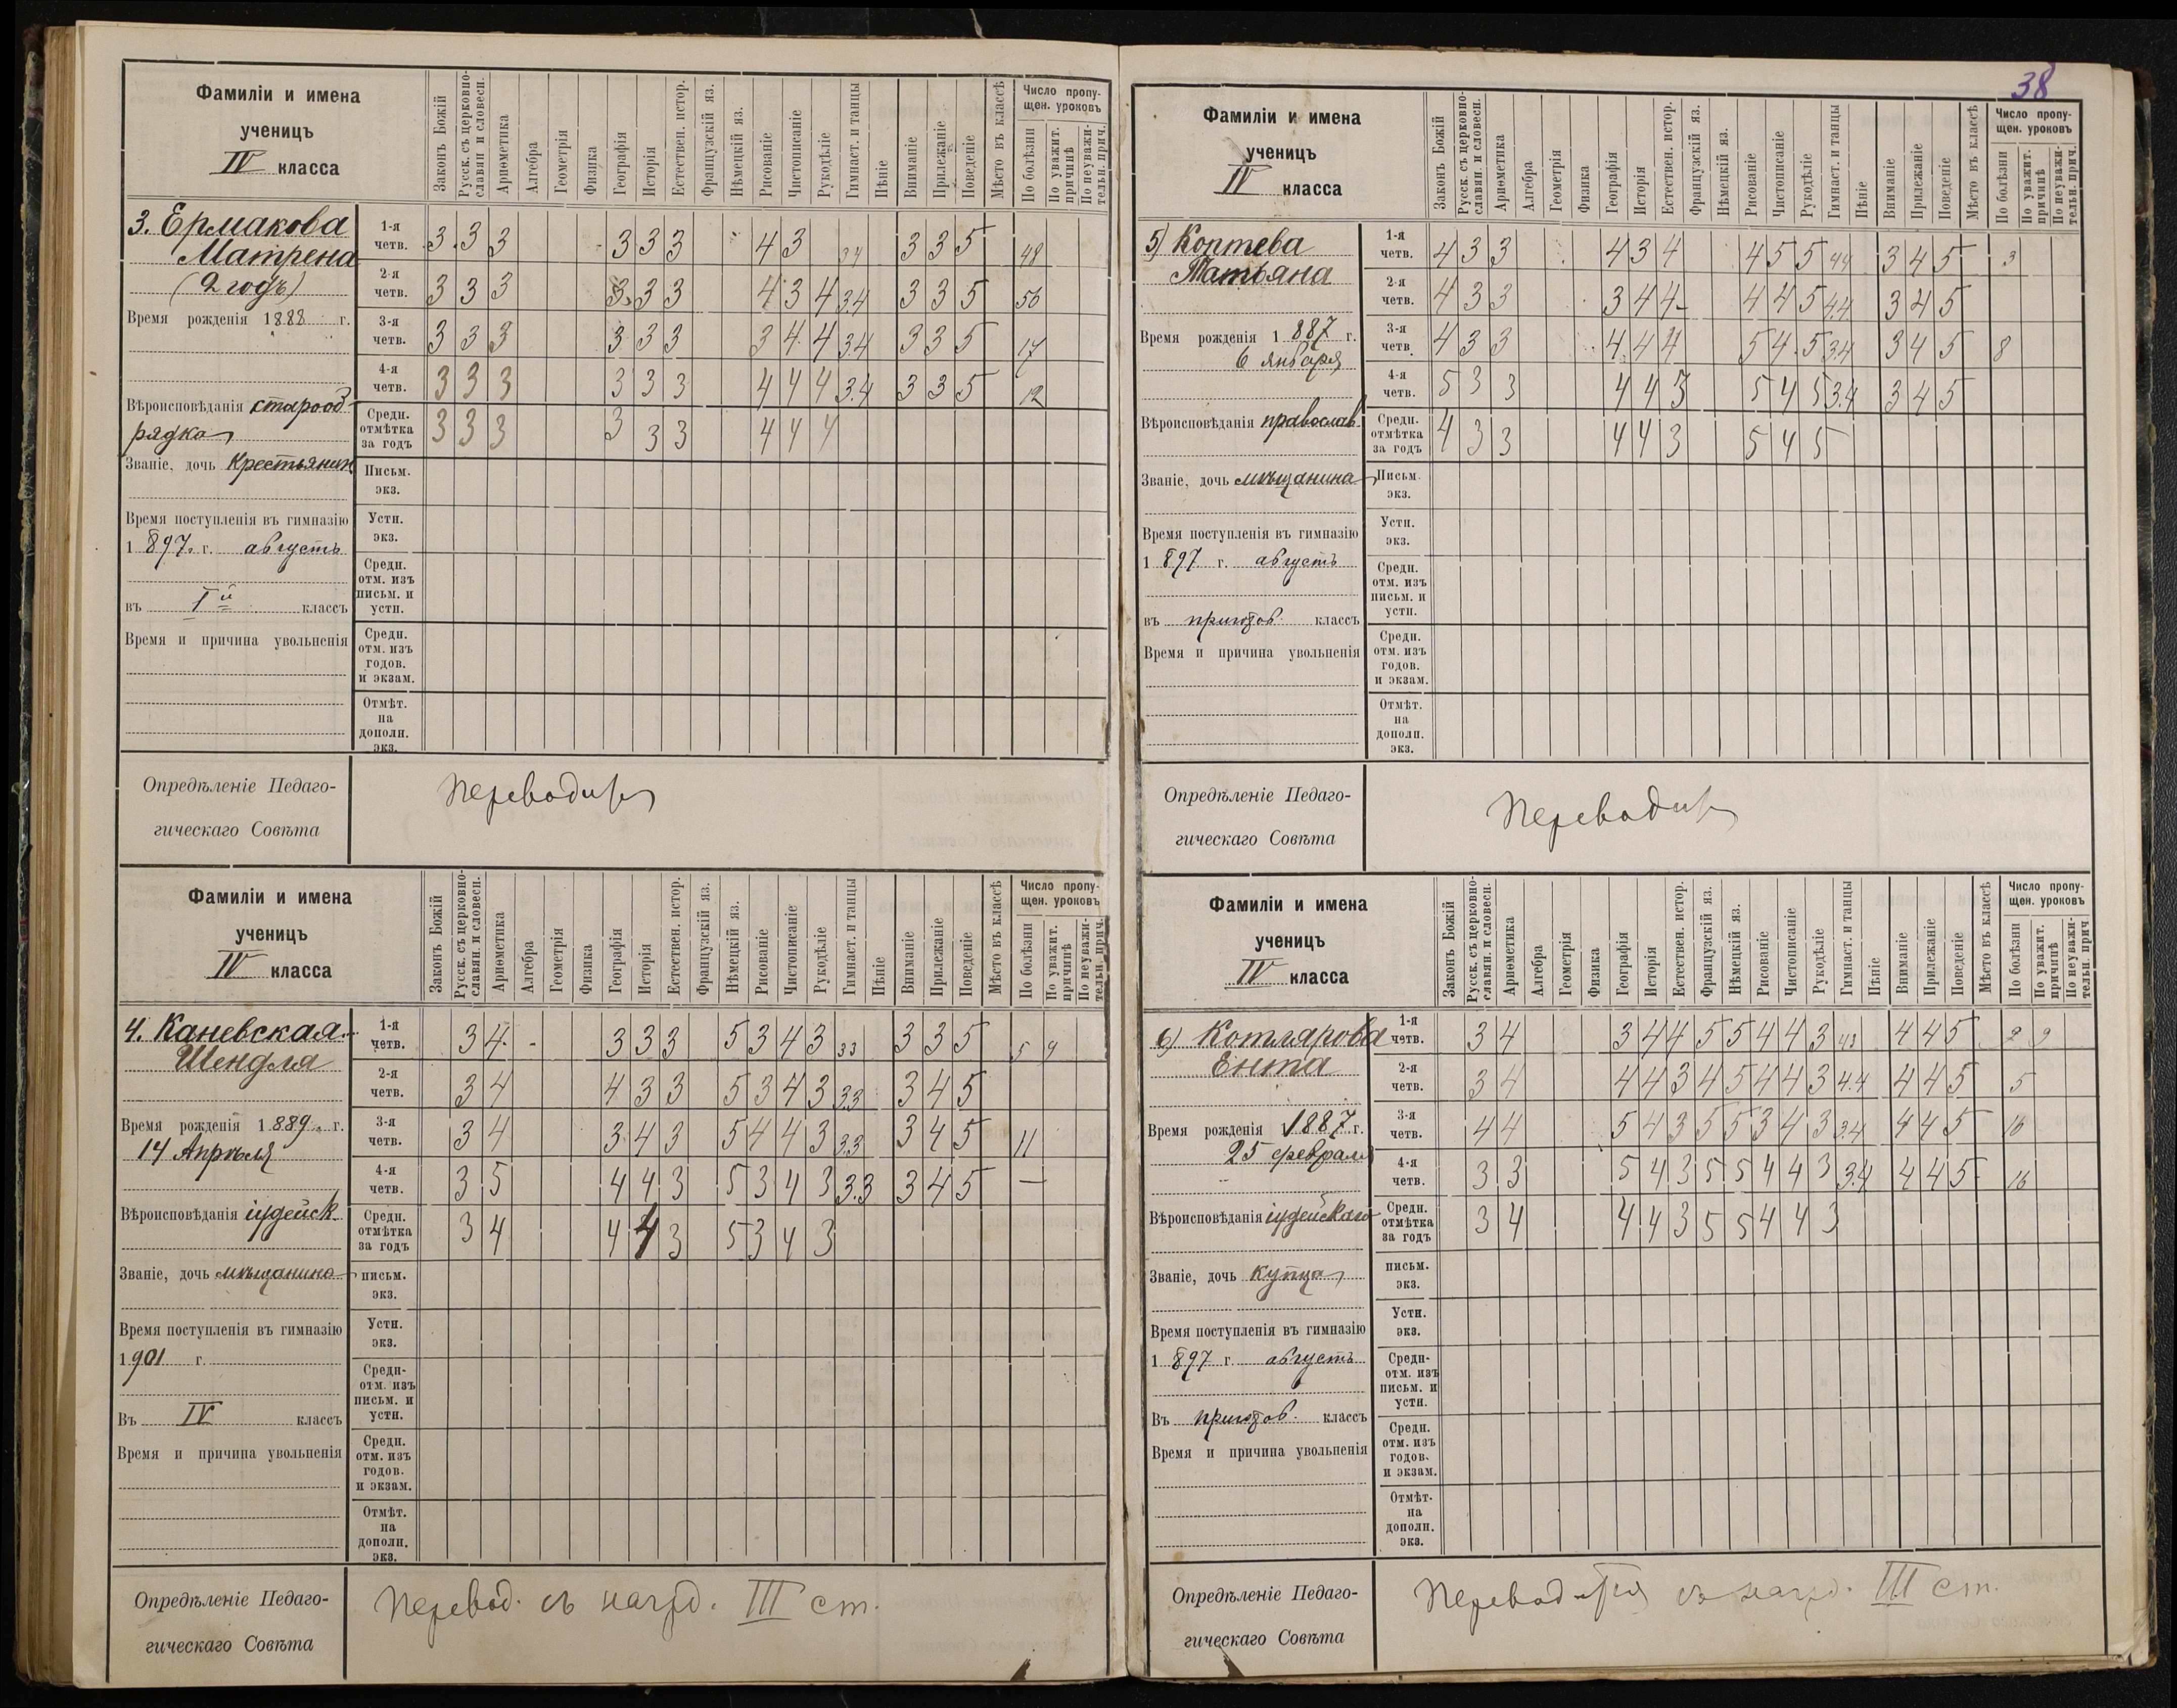 38
Фамиліи и имена
ученицъ
IV класса
Законъ Божій
Русск. съ церковно-
славян. и словесн.
Ариѳметика
Алгебра
Геометрія
Физика
Географія
Исторія
Естествен. истор.
Французскій яз.
Нѣмецкій яз.
Рисованіе
Чистописаніе
Рукодѣліе
Гимнаст. и танцы
Пѣніе
Вниманіе
Прилежаніе
Поведеніе
Мѣсто въ классѣ
Число пропу-
щен. уроковъ
По болѣзни
По уважит.
причинѣ
По неуважи-
тельн. прич.
3. Ермакова
Матрена
(2 годъ)
Время рожденія 1888 г.
Вѣроисповѣданія старооб-
рядка
Званіе, дочь Крестьянин
Время поступленія въ гимназію
1897 г. августъ
въ Iй классъ
Время и причина увольненія
1-я четв. 3 3 3 3 3 3 4 3 3 4 3 3 5 48
2-я четв. 3 3 3 3 3 3 4 3 4 3 4 3 3 5 56
3-я четв. 3 3 3 3 3 3 3 4 4 3 4 3 3 5 17
4-я четв. 3 3 3 3 3 3 4 4 4 3 4 3 3 5 12
Средн. отмѣтка за годъ 3 3 3 3 3 3 4 4 4
Письм. экз.
Устн. экз.
Средн. отм. изъ письм. и устн.
Средн. отм. изъ годов. и экзам.
Отмѣт. на дополн. экз.
Опредѣленіе Педаго-
гическаго Совѣта
Переводится
Фамиліи и имена
ученицъ
IV класса
Законъ Божій
Русск. съ церковно-
славян. и словесн.
Ариѳметика
Алгебра
Геометрія
Физика
Географія
Исторія
Естествен. истор.
Французскій яз.
Нѣмецкій яз.
Рисованіе
Чистописаніе
Рукодѣліе
Гимнаст. и танцы
Пѣніе
Вниманіе
Прилежаніе
Поведеніе
Мѣсто въ классѣ
Число пропу-
щен. уроковъ
По болѣзни
По уважит.
причинѣ
По неуважи-
тельн. прич.
4. Каневская
Шендля
Время рожденія 1889 г.
14 Апрѣля
Вѣроисповѣданія іудейск.
Званіе, дочь мѣщанина
Время поступленія въ гимназію
1901 г.
Въ IV классъ
Время и причина увольненія
1-я четв. 3 4 3 3 3 5 3 4 3 3 3 3 3 5 5 4
2-я четв. 3 4 4 3 3 5 3 4 3 3 3 3 4 5
3-я четв. 3 4 3 4 3 5 4 4 3 3 3 3 4 5 11
4-я четв. 3 5 4 4 3 5 3 4 3 3 3 3 4 5 —
Средн. отмѣтка за годъ 3 4 4 4 3 5 3 4 3
письм. экз.
Устн. экз.
Средн- отм. изъ письм. и устн.
Средн. отм. изъ годов. и экзам.
Отмѣт. на дополн. экз.
Опредѣленіе Педаго-
гическаго Совѣта
Перевод. съ нагр. III ст.
Фамиліи и имена
ученицъ
IV класса
Законъ Божій
Русск. съ церковно-
славян. и словесн.
Ариѳметика
Алгебра
Геометрія
Физика
Географія
Исторія
Естествен. истор.
Французскій яз.
Нѣмецкій яз.
Рисованіе
Чистописаніе
Рукодѣліе
Гимнаст. и танцы
Пѣніе
Вниманіе
Прилежаніе
Поведеніе
Мѣсто въ классѣ
Число пропу-
щен. уроковъ
По болѣзни
По уважит.
причинѣ
По неуважи-
тельн. прич.
5) Коптева
Татьяна
Время рожденія 1887 г.
6 января
Вѣроисповѣданія православ.
Званіе, дочь мѣщанина
Время поступленія въ гимназію
1897 г. августъ
въ приготов. классъ
Время и причина увольненія
1-я четв. 4 3 3 4 3 4 4 5 5 4 4 3 4 5 3
2-я четв. 4 3 3 3 4 4 4 4 5 4 4 3 4 5
3-я четв. 4 3 3 4 4 4 5 4 5 3 4 3 4 5 8
4-я четв. 5 3 3 4 4 3 5 4 5 3 4 3 4 5
Средн. отмѣтка за годъ 4 3 3 4 4 3 5 4 5
Письм. экз.
Устн. экз.
Средн. отм. изъ письм. и устн.
Средн. отм. изъ годов. и экзам.
Отмѣт. на дополн. экз.
Опредѣленіе Педаго-
гическаго Совѣта
Переводится
Фамиліи и имена
ученицъ
IV класса
Законъ Божій
Русск. съ церковно-
славян. и словесн.
Ариѳметика
Алгебра
Геометрія
Физика
Географія
Исторія
Естествен. истор.
Французскій яз.
Нѣмецкій яз.
Рисованіе
Чистописаніе
Рукодѣліе
Гимнаст. и танцы
Пѣніе
Вниманіе
Прилежаніе
Поведеніе
Мѣсто въ классѣ
Число пропу-
щен. уроковъ
По болѣзни
По уважит.
причинѣ
По неуважи-
тельн. прич
6) Котлярова
Ента
Время рожденія 1887 г.
25 февраля
Вѣроисповѣданія іудейскаго
Званіе, дочь купца
Время поступленія въ гимназію
1897 г. августъ
Въ приготов. классъ
Время и причина увольненія
1-я четв. 3 4 3 4 4 5 5 4 4 3 4 3 4 4 5 2 9
2-я четв. 3 4 4 4 3 4 5 4 4 3 4 4 4 4 5 5
3-я четв. 4 4 5 4 3 5 5 3 4 3 3 4 4 4 5 10
4-я четв. 3 3 5 4 3 5 5 4 4 3 3 4 4 4 5 16
Средн. отмѣтка за годъ 3 4 4 4 3 5 5 4 4 3
письм. экз.
Устн. экз.
Средн- отм. изъ письм. и устн.
Средн. отм. изъ годов. и экзам.
Отмѣт. на дополн. экз.
Опредѣленіе Педаго-
гическаго Совѣта
Переводится съ нагр. III ст.